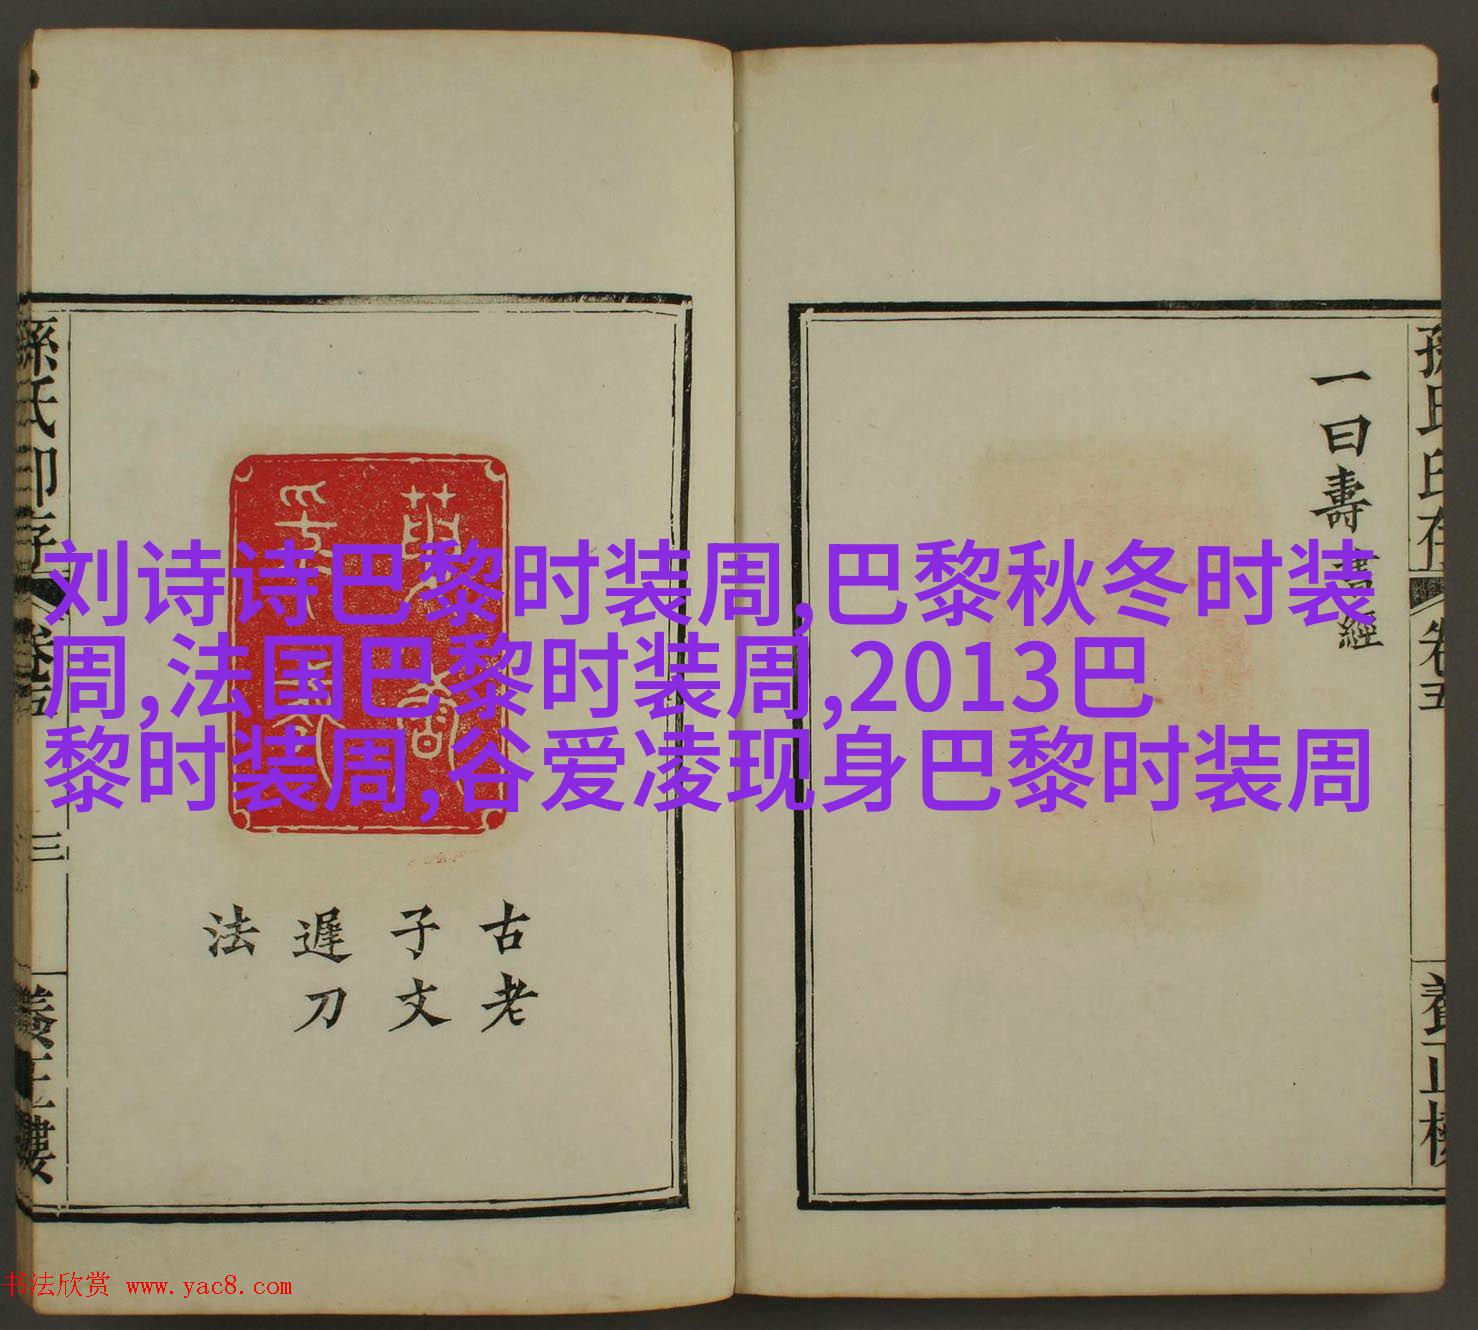 刘诗诗巴黎时装周,巴黎秋冬时装
周,法国巴黎时装周,2013巴
黎时装周,谷爱凌现身巴黎时装周
一曰壽
經
孫氏印存
卷五
養正樓
古老
子文
遲刀
法
孫氏印存
卷五
三
養正樓
书法欣赏 www.yac8.com